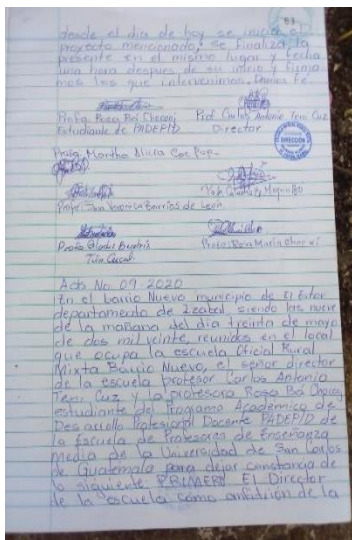 63
desde el dia de hoy se inicia el
proyecto mencionado, Se Finaliza, la
presente en el mismo lugar y fecha
una hora despues de su inicio y firma
mos los que intervenimos. Damos Fé.
Profa. Rosa Bá Choc Prof. Carlos Antonio Teni Cuz
Estudiante de PADEP/D Director
DIRECCIÓN
Profa. Martha Alicia Coc Pop
Profa. Veronica Barrios de León
Profa. Gladis Beatris Profa. Rosa Maria
Tiún Cucul
Acta No. 09 2020
En el barrio Nuevo municipio de El Estor
departamento de Izabal siendo las nueve
de la mañana del dia treinta de mayo
de dos mil veinte, reunidos en el local
que ocupa la escuela Oficial Rural
Mixta Barrio Nuevo, el señor director
de la escuela profesor Carlos Antonio
Teni Cuz y la profesora Rosa Bá
estudiante del Programa Académico de
Desarrollo Profesional Docente PADEP/D de
la Escuela de Profesores de Enseñanza
Media de la Universidad de San Carlos
de Guatemala para dejar constancia de
lo siguiente PRIMERO. El Director
de la escuela como anfitrión de la